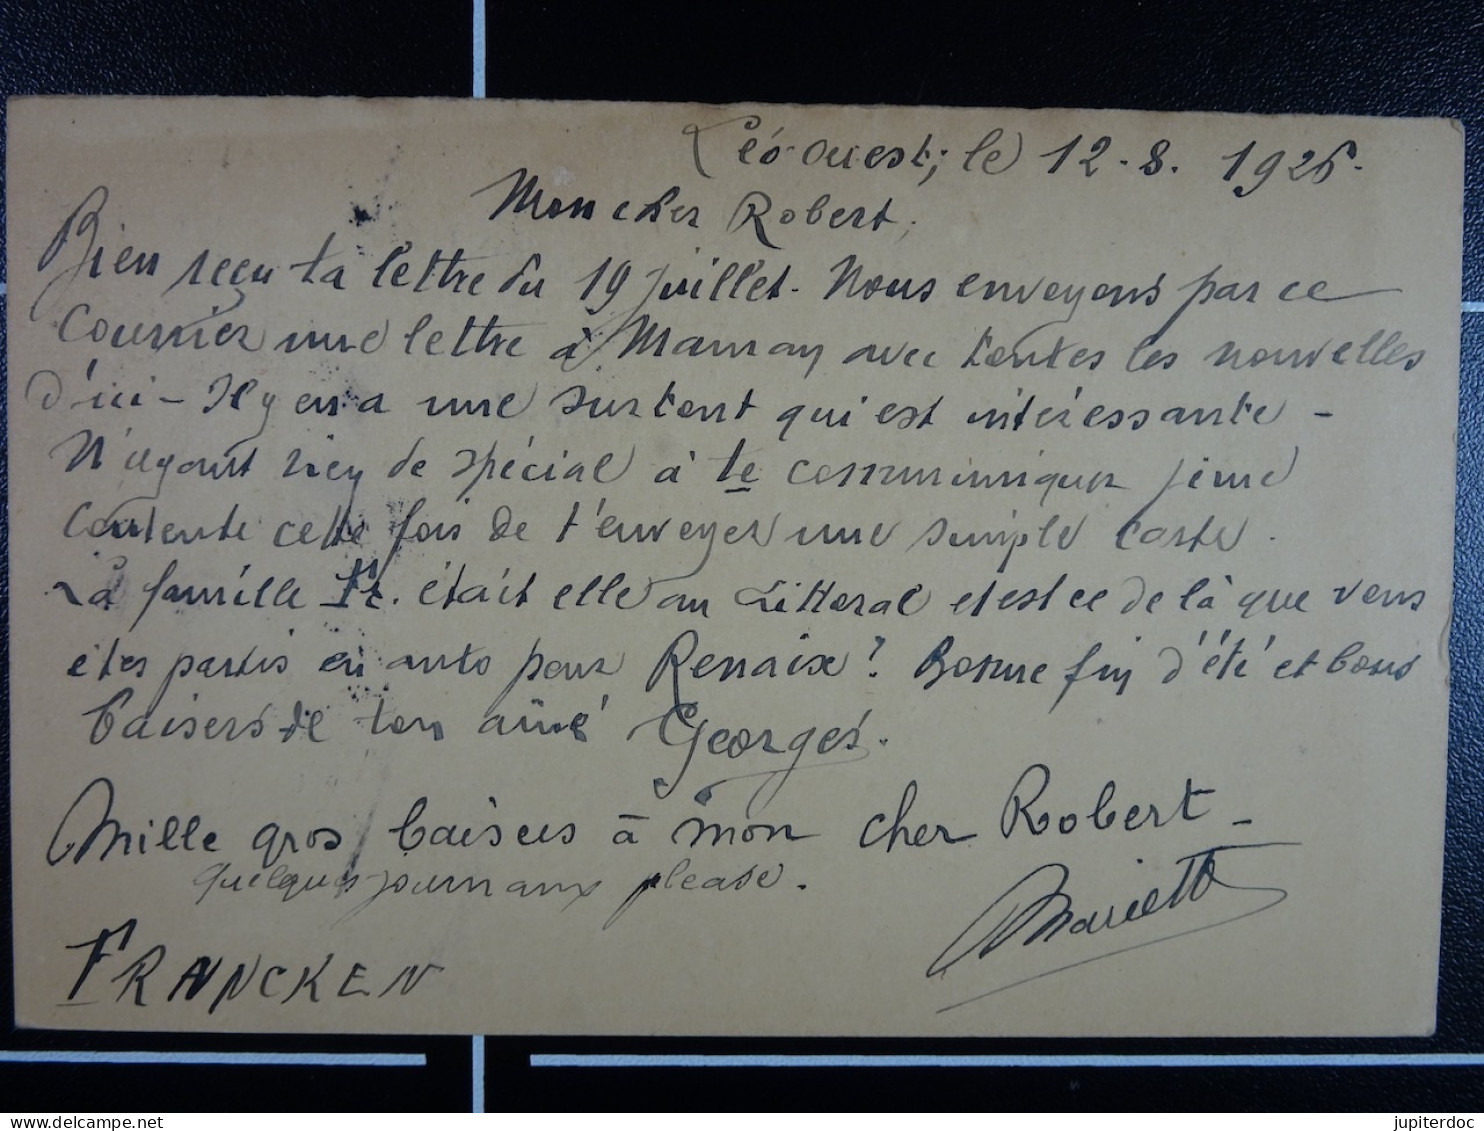 Léo-Ouest, le 12-8. 1926.
Mon cher Robert,
Bien reçu ta lettre du 19 juillet. Nous envoyons par ce
courrier une lettre à Maman avec toutes les nouvelles
d'ici - Il y en a une surtout qui est intéressante -
N'ayant rien de spécial à te communiquer je me
contente cette fois de t'envoyer une simple carte.
La famille Fr. était elle au Littoral et est ce de là que vous
êtes partis en auto pour Renaix? Bonne fin d'été et bons
baisers de ton aîné Georges.
Mille gros baisers à mon cher Robert -
quelques journaux please.
Mariette
FRANCKEN
delcampe.net
jupiterdoc